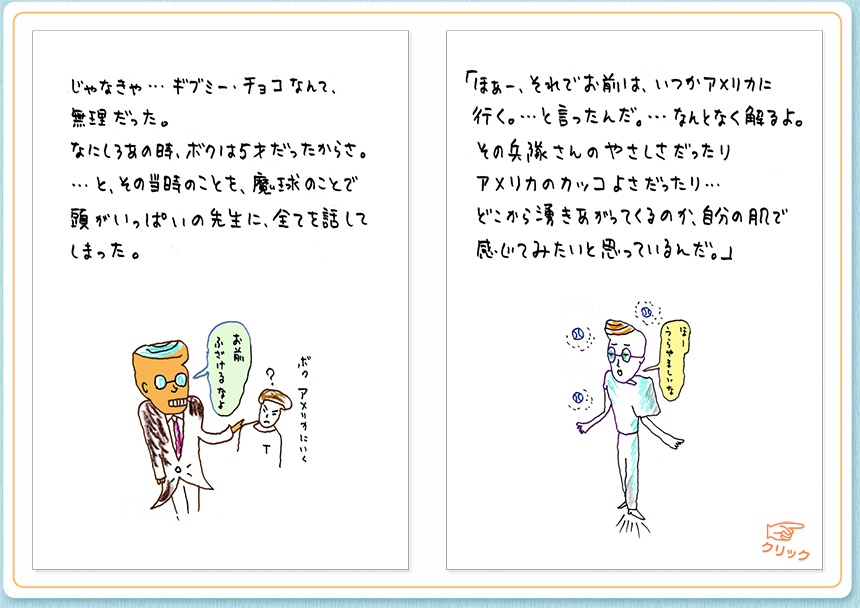 じゃなきゃ…ギブミー・チョコなんて、
無理だった。
なにしろあの時、ボクは5才だったからさ。
…と、その当時のことを、魔球のことで
頭がいっぱいの先生に、全てを話して
しまった。
お前
ふざけるなよ
?
ボク アメリカにいく
T
「ほぉー、それでお前は、いつかアメリカに
行く。…と言ったんだ。…なんとなく解るよ。
その兵隊さんのやさしさだったり
アメリカのカッコよさだったり…
どこから湧きあがってくるのか、自分の肌で
感じてみたいと思っているんだ。」
ほー
うらやましいな
クリック